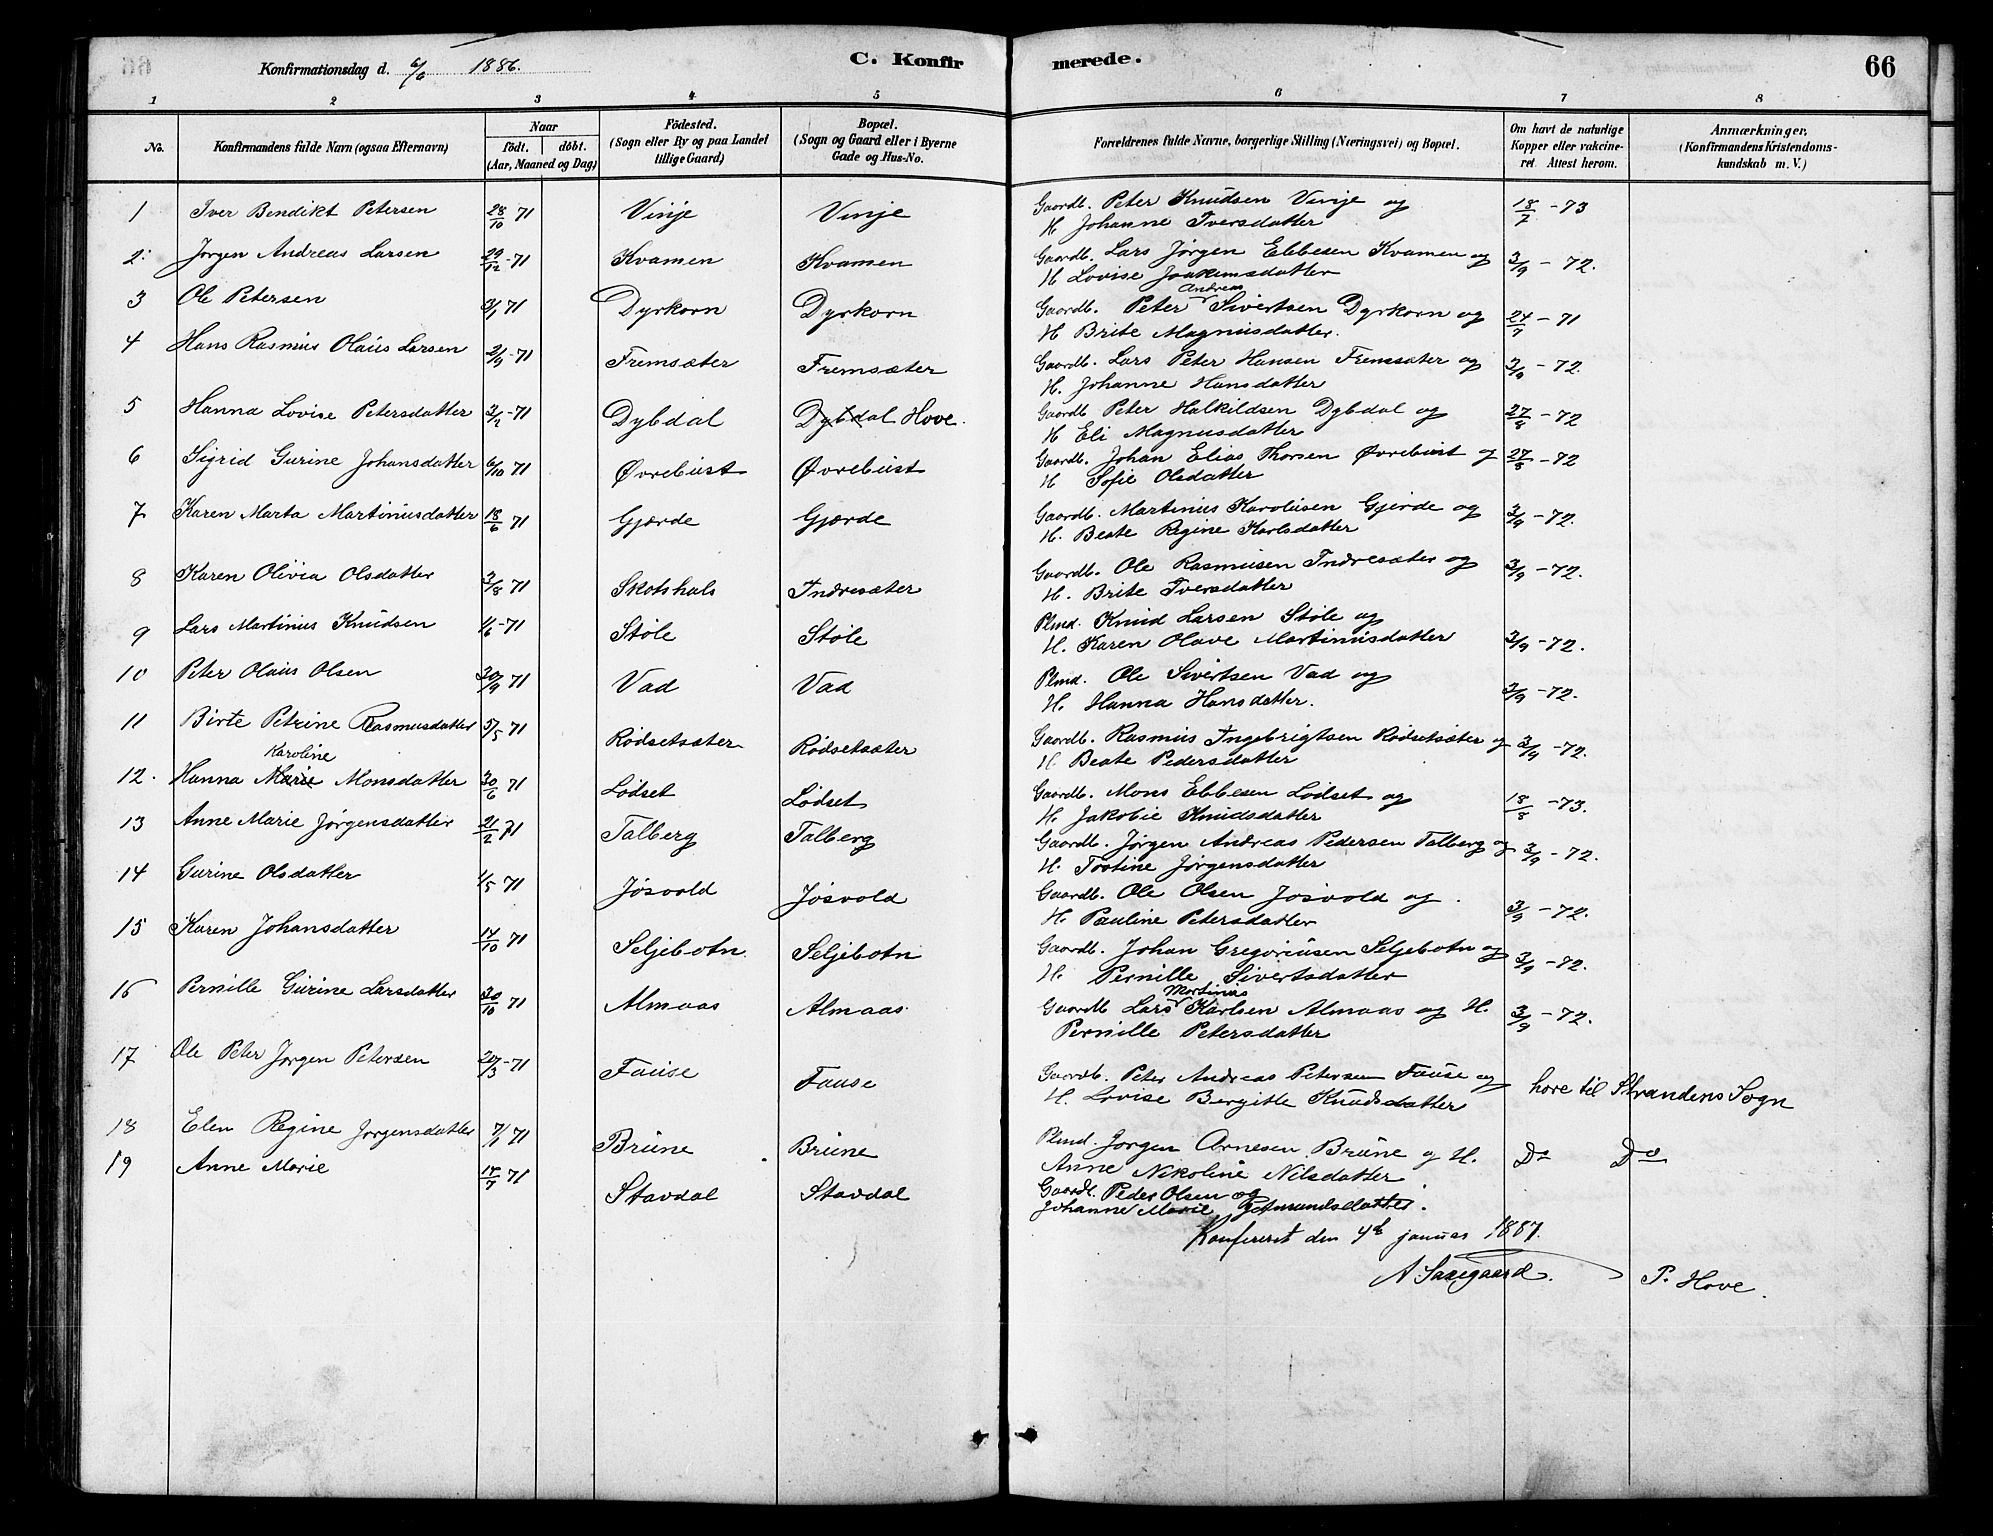 Konfirmationsdag d. 6/6 1886.
C. Konfirmerede.
66
1 2 3 4 5 6 7 8
No.
Konfirmandens fulde Navn (ogsaa Efternavn)
Naar
födt. döbt.
(Aar, Maaned og Dag)
Födested.
(Sogn eller By og paa Landet
tillige Gaard)
Bopæl.
(Sogn og Gaard eller i Byerne
Gade og Hus-No.
Forældrenes fulde Navne, borgerlige Stilling (Næringsvei) og Bopæl.
Om havt de naturlige
Kopper eller vakcine-
ret. Attest herom.
Anmærkninger.
(Konfirmandens Kristendoms-
kundskab m. V.)
1 Iver Bendikt Petersen 28/10 71 Vinje Vinje Gaardb. Peter Knudsen Vinje og 18/7 - 73
H. Johanne Iversdatter
2. Jørgen Andreas Larsen 29/12-71 Kvamen Kvamen Gaardb. Lars Jørgen Ebbesen Kvamen og 3/9 - 72.
H Lovise Joakimsdatter
3 Ole Petersen 3/1 71 Dyrkorn Dyrkorn Gaardb. Peter Andreas Sivertsen Dyrkorn og 24/7 - 71
H Brite Magnusdatter.
4 Hans Rasmus Olaus Larsen 2/9-71 Fremsæter Fremsæter Gaardb. Lars Peter Hansen Fremsæter og 3/9 - 72.
H. Johanne Hansdatter
5 Hanna Lovise Petersdatter 3/2-71 Dybdal Dybdal Hove. Gaardb Peter Halkildsen Dybdal og 27/8 - 72
H Eli Magnusdatter
6 Sigrid Gurine Johansdatter 6/10 71 Øvrebust Øvrebust Gaardb. Johan Elias Thorsen Øvrebust og 27/8 - 72
H Sofie Olsdatter
7 Karen Marta Martinusdatter 18/6 71 Gjærde Gjærde Gaardb. Martinus Karolusen Gjerde og 3/9 - 72.
H. Beate Regine Karlsdatter
8 Karen Olivia Olsdatter 3/8 71 Skotshals Indresæter Gaardb. Ole Rasmusen Indresæter og 3/9 - 72.
H. Brite Iversdatter
9 Lars Martinus Knudsen 1/6-71 Støle Støle Plmd. Knud Larsen Støle og
H. Karen Olave Martinusdatter 3/9 - 72.
10 Peter Olaus Olsen 30/9 71 Vad Vad Plmd. Ole Sivertsen Vad og
H. Hanna Hansdatter. 3/9 - 72.
11 Birte Petrine Rasmusdatter 5/5 71 Rødsetsæter Rødsetsæter Gaardb. Rasmus Ingebrigtsen Rødsetsæter og 3/9 - 72.
H. Beate Pedersdatter
Karoline
12. Hanna Marie Monsdatter 30/6 71 Lødset Lødset Gaardb. Mons Ebbesen Lødset og 18/8 - 73.
H. Jakobie Knudsdatter
13 Anne Marie Jørgensdatter 21/2 71 Talberg Talberg Gaardb. Jørgen Andreas Pedersen Talberg og 3/9 - 72.
H. Tostine Jørgensdatter
14 Gurine Olsdatter 1/5 71 Jøsvold Jøsvold Gaardb. Ole Olsen Jøsvold og 3/9 - 72.
H. Pauline Petersdatter
15 Karen Johansdatter 17/10 71 Seljebotn Seljebotn Gaardb. Johan Gregoriusen Seljebotn og 3/9 - 72.
H. Pernille Sivertsdatter
16 Pernille Gurine Larsdatter 30/10 71 Almaas Almaas Gaardb Lars Martinus Karlsen Almaas og H. 3/9 - 72.
Pernille Petersdatter
17 Ole Peter Jørgen Petersen 20/3-71 Fause Fause Gaardb. Peter Andreas Petersen Fause og hore til Strandens Sogn
H. Lovise Bergitte Knudsdatter
18 Elen Regine Jørgensdatter 7/1 71 Brune Brune Plmd. Jørgen Arnesen Brune og H. Do Do
Anne Nikoline Nilsdatter
19 Anne Marie 17/7 71 Stavdal Stavdal Gaardb. Peder Olsen og
Johanne Marie datter.
Konfereret den 4de januar 1887.
A Saxegaard. P. Hove.